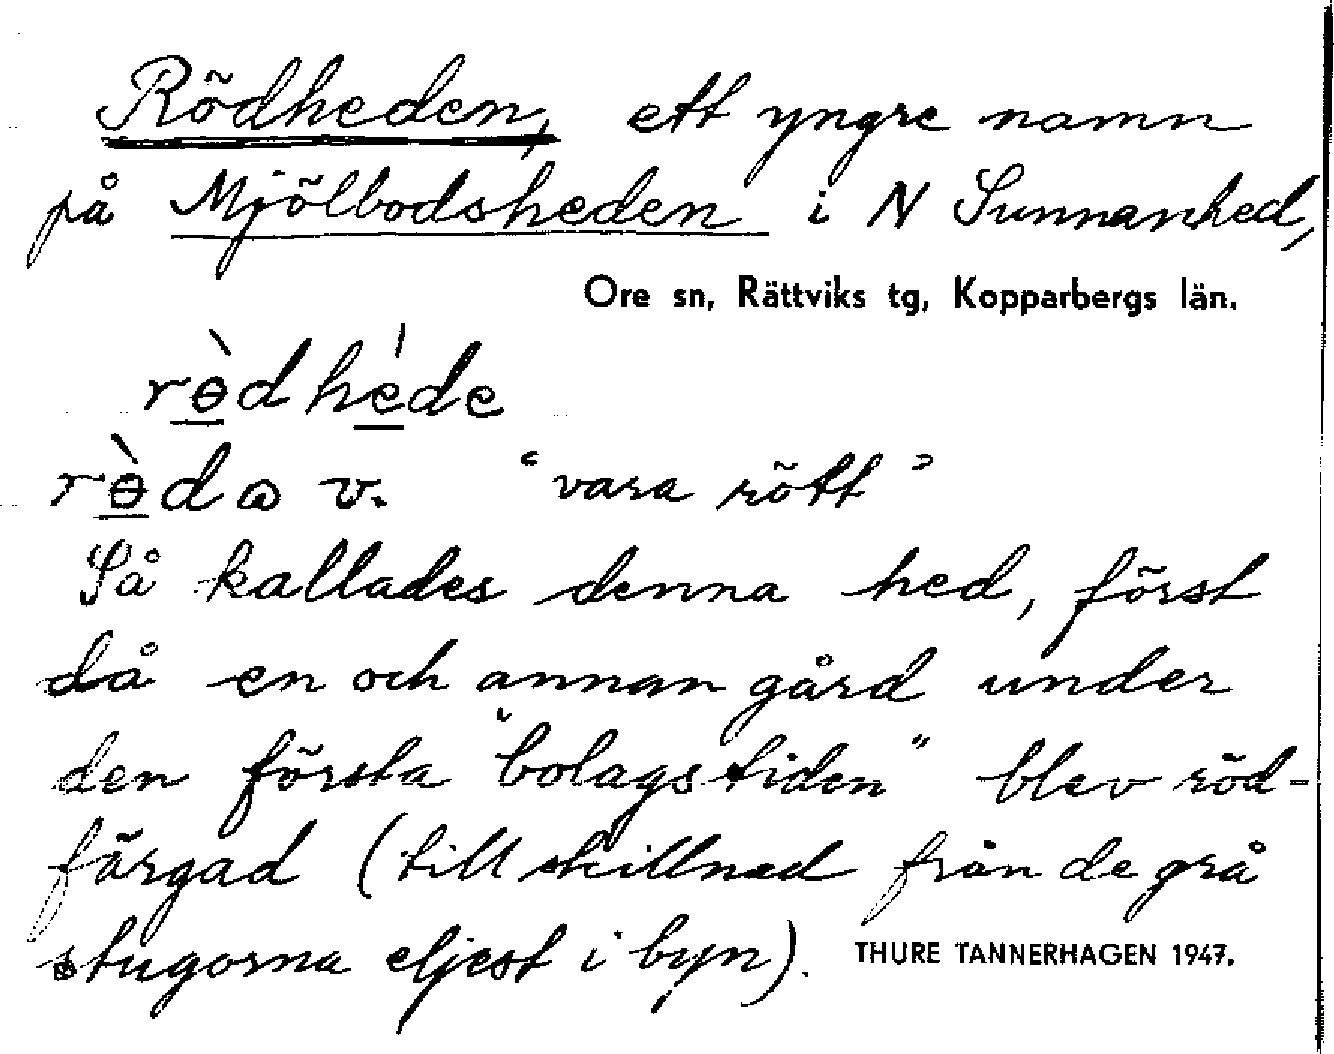 Rödheden, ett yngre namn
på Mjölbodsheden i N Sunnanhed,
Ore sn, Rättviks tg, Kopparbergs län.
rɵ̀dhéde
rɵ̀da v. "vara rött"
Så kallades denna hed, först
då en och annan gård under
den första "bolagstiden" blev röd-
färgad (till skillnad från de grå
stugorna eljest i byn).
THURE TANNERHAGEN 1947.